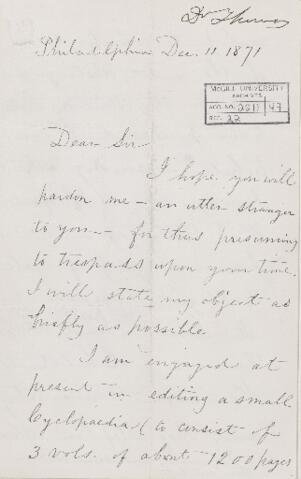 Dr Thomas
Philadelphia Dec. 11 1871
McGILL UNIVERSITY
ARCHIVES
ACC. NO. 2211/47
REF. 22
Dear Sir
I hope you will
pardon me — an utter stranger
to you — for thus presuming
to trespass upon your time.
I will state my object as
briefly as possible.
I am engaged at
present in editing a small
Cyclopaedia (to consist of
3 vols. of about 1200 pages